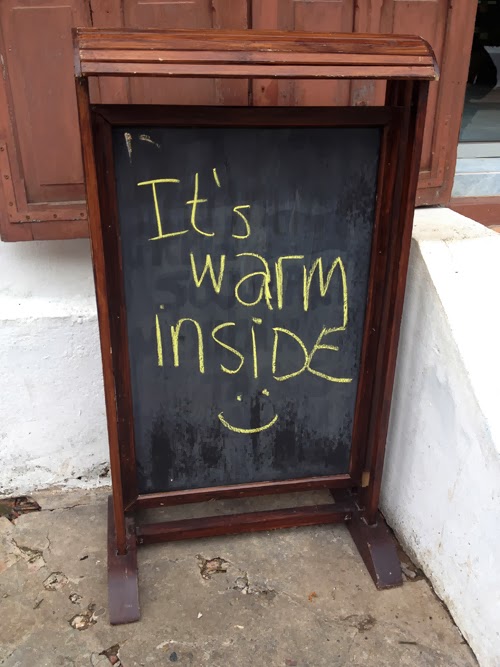 It's
warm
insidE